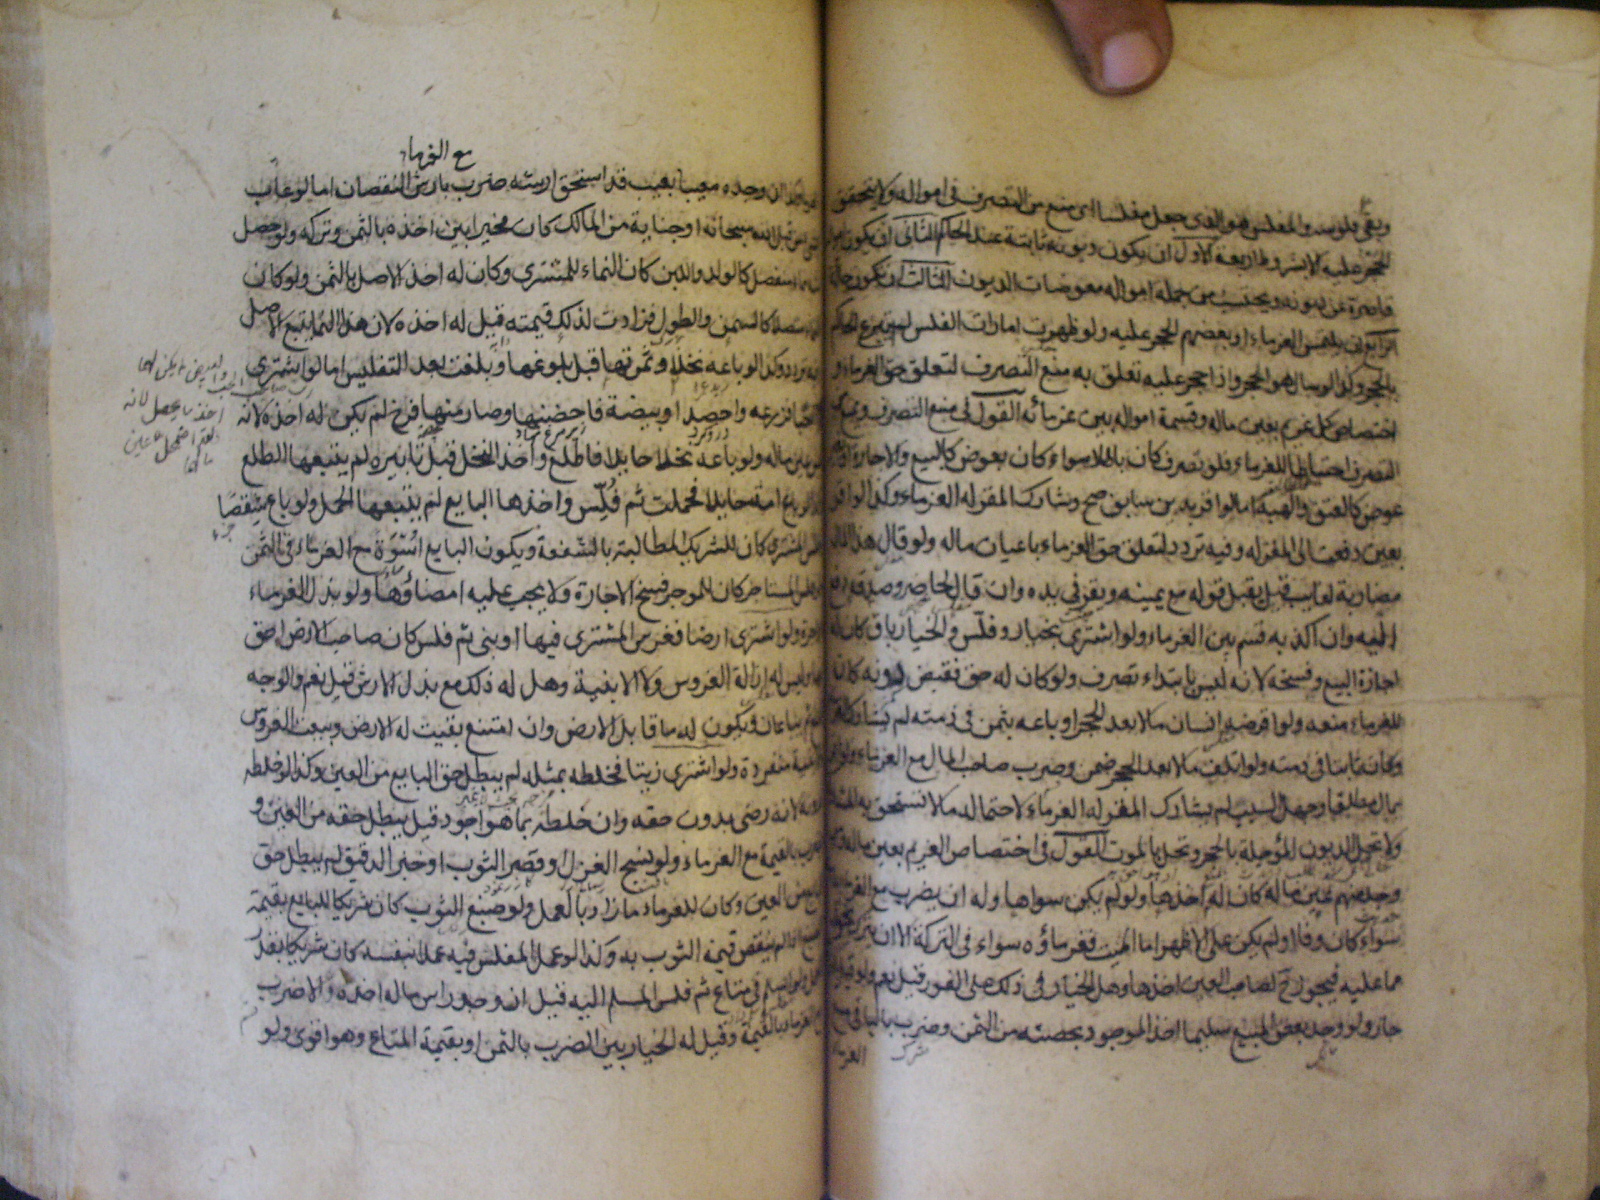 وبقي فلوسه والمفلس هو الذي جعل مفلسا اى منع من التصرف فى امواله ولا يتحقق
الحجر عليه الا بشروط اربعة الاول ان يكون ديونه ثابتة عند الحاكم الثانى ان يكون امواله
قاصرة عن ديونه ويحتسب من جملة امواله معوضات الديون الثالث ان يكون حالة
الرابع ان يلتمس الغرماء او بعضهم الحجر عليه ولو ظهرت امارات الفلس لم يتبرع الحاكم
بالحجر وكذا لو سال هو الحجر واذا حجر عليه تعلق به منع التصرف لتعلق حق الغرماء و
اختصاص كل غريم بعين ماله وقسمة امواله بين غرمائه القول فى منع التصرف ويمنع من
التصرف احتياطا للغرماء فلو تصرف كان باطلا سواء كان بعوض كالبيع والاجارة او بغير
عوض كالعتق والهبة اما لو اقر بدين سابق صح وشارك المقر له الغرماء وكذا لو اقر
بعين دفعت الى المقر له وفيه تردد لتعلق حق الغرماء باعيان ماله ولو قال هذا المال
مضاربة لغايب قيل يقبل قوله مع يمينه ويقر فى يده وان قال لحاضر وصدقه دفع
اليه وان اكذبه قسم بين الغرماء ولو اشترى بخيار وفلس والخيار باق كان له
اجازة البيع وفسخه لانه ليس بابتداء تصرف ولو كان له حق فقبض دونه كان
للغرماء منعه ولو اقرضه انسان مالا بعد الحجر او باعه بثمن فى ذمته لم يشارك الغرماء
وكان ثابتا فى ذمته ولو اتلف مالا بعد الحجر ضمن وضرب صاحب المال مع الغرماء ولو اقر
بمال مطلقا وجهل السبب لم يشارك المقر له الغرماء لاحتماله مالا تستحق به المشاركة
ولا تحل الديون المؤجلة بالحجر وتحل بالموت القول فى اختصاص الغريم بعين ماله ومن
وجد منهم عين ماله كان له اخذها ولو لم يكن سواها وله ان يضرب مع الغرماء
سواء كان وفاء او لم يكن على الاظهر اما الميت فغرماؤه سواء فى التركة الا ان يترك نحوا
مما عليه فيجوز ح لصاحب العين اخذها وهل الخيار فى ذلك على الفور قيل نعم ولو قيل بالتراخى
جاز ولو وجد بعض المبيع سليما اخذ الموجود بحصته من الثمن وضرب بالباقى مع
الغرماء
مع الغرماء
وكذا ان وجده معيبا بعيب قد استحق ارشه ضرب بارش النقصان اما لو عاب
بشىء من قبل الله سبحانه او جناية من المالك كان مخيرا بين اخذه بالثمن وتركه ولو حصل
منه نماء منفصل كالولد واللبن كان النماء للمشترى وكان له اخذ الاصل بالثمن ولو كان
النماء متصلا كالسمن والطول فزادت لذلك قيمته قيل له اخذه لان هذا النماء يتبع الاصل
وفيه تردد وكذا لو باعه نخلا وثمرتها قبل بلوغها وبلغت بعد التفليس اما لو اشترى
حبا فزرعه واحصد او بيضة فاحضنها وصار منها فرخ لم يكن له اخذه لانه
ليس عين ماله ولو باعه نخلا حايلا فاطلع واخذ النخل قبل تابيره لم يتبعها الطلع
وكذا لو باع امة حايلا فحملت ثم فلس واخذها البايع لم يتبعها الحمل ولو باع شقصا
وفلس المشترى كان للشريك المطالبة بالشفعة ويكون البايع اسوة مع الغرماء فى الثمن
ولو فلس المستاجر كان للموجر فسخ الاجارة ولا يجب عليه امضاؤها ولو بذل الغرماء
الاجرة ولو اشترى ارضا فغرس المشترى فيها او بنى ثم فلس كان صاحب الارض احق
بها وليس له ازالة الغروس ولا الابنية وهل له ذلك مع بذل الارش قيل نعم والوجه
المنع ثم يباعان ويكون له ما قابل الارض وان امتنع بقيت له الارض وبيعت الغروس
والابنية منفردة ولو اشترى زيتا فخلطه بمثله لم يبطل حق البايع من العين وكذا لو خلطه
بدونه لانه رضى بدون حقه وان خلطه بما هو اجود قيل يبطل حقه من العين و
يضرب بالقيمة مع الغرماء ولو نسج الغزل او قصر الثوب او خبز الدقيق لم يبطل حق
البايع من العين وكان للغرماء ما زاد بالعمل ولو صبغ الثوب كان شريكا للبايع بقيمة
الصبغ اذا لم ينقص قيمة الثوب به وكذا لو عمل المفلس فيه عملا بنفسه كان شريكا بقدر
العمل ولو اسلم فى متاع ثم فلس المسلم اليه قيل ان وجد راس ماله اخذه والا ضرب
مع الغرماء بالقيمة وقيل له الخيار بين الضرب بالثمن او بقيمة المتاع وهو اقوى ولو